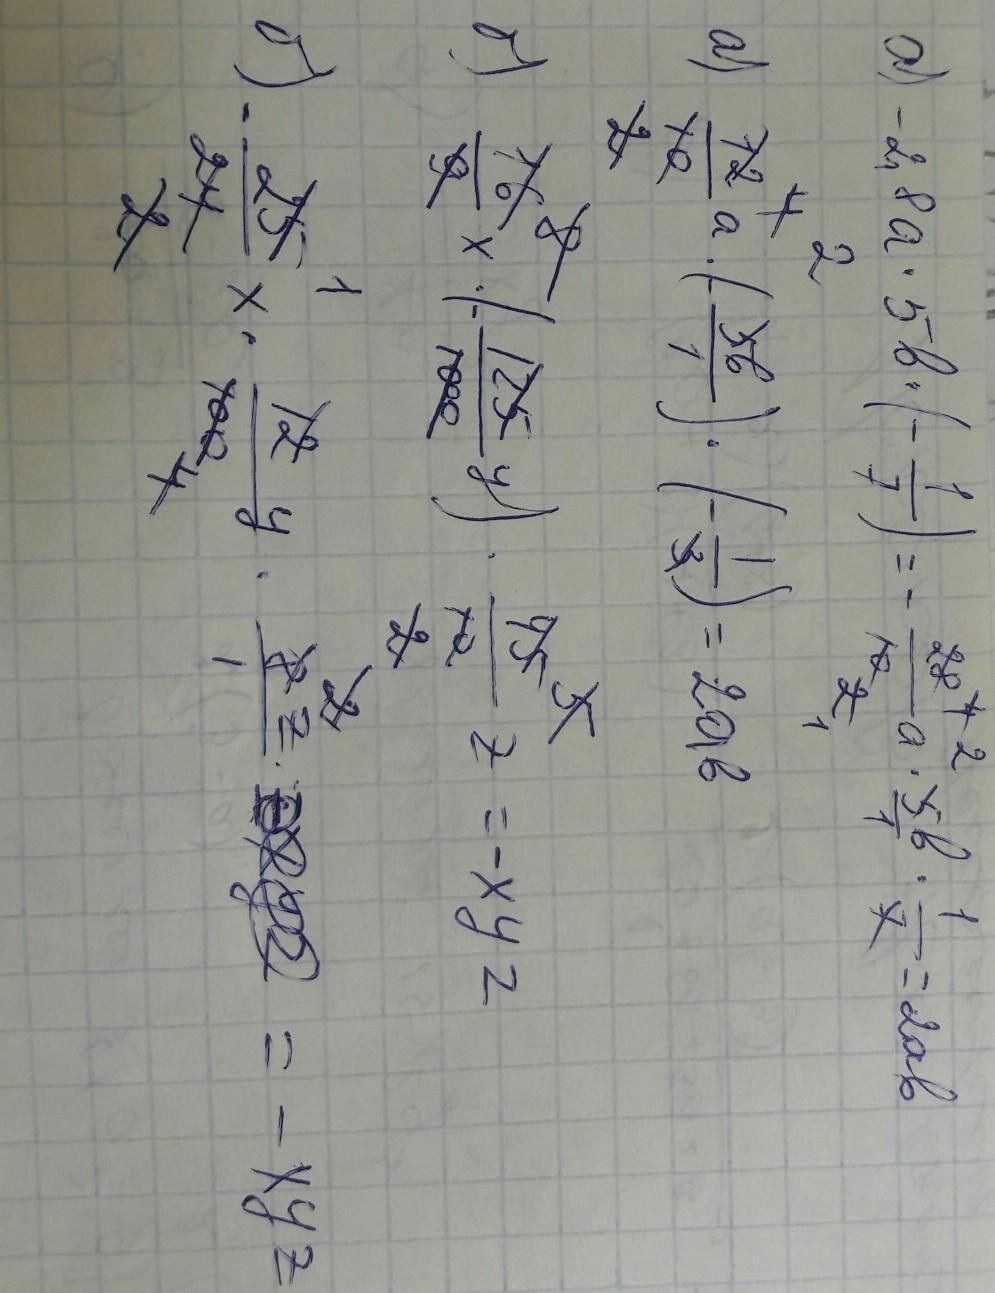 а) -2,8a · 5b · (-1/7) = - 28/10 a · 5b/1 · 1/7 = 2ab
а) 12/10 a · (5b/1) · (-1/3) = 2ab
б) 16/9 x · (-125/1000 y) · 45/10 z = -xyz
б) - 25/24 x · 12/100 y · 8/1 z = - xyz